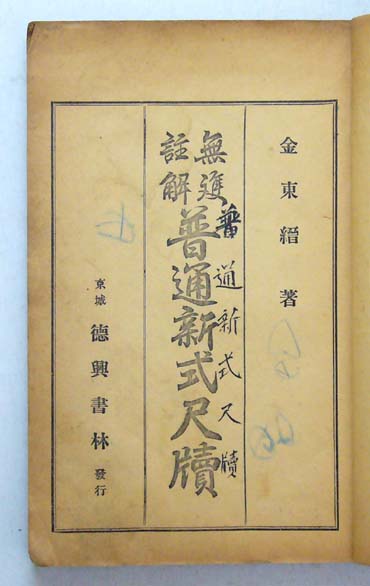 金東縉著
無雙
註解
普通新式尺牘
普通新式尺牘
京城 德興書林 發行